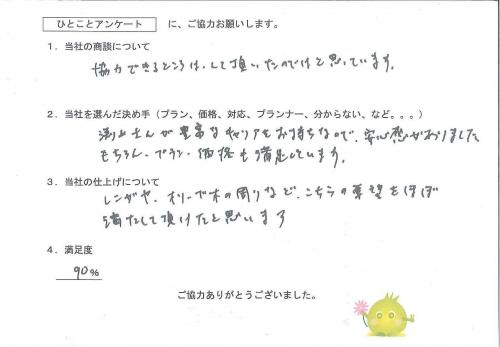 ひとことアンケート に、ご協力お願いします。
1．当社の商談について
協力できるところは、して頂いたのではと思っています。
2．当社を選んだ決め手（プラン、価格、対応、プランナー、分からない、など。。。）
さんが豊富なキャリアをお持ちなので、安心感がありました
もちろん、プラン・価格も満足しています。
3．当社の仕上げについて
レンガや、オリーブ木の周りなど、こちらの要望をほぼ
満たして頂けたと思います
4．満足度
90%
ご協力ありがとうございました。